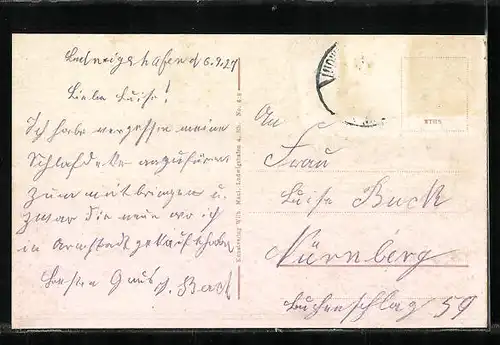 Ludwigshafen d 6.9.27
Liebe Luise!
Ich habe vergessen meine
Schlafdecke anzuführen
zum mitbringen u.
zwar die neue wo ich
in Armstadt gekauft habe.
Besten Gruss
Kunstverlag Wilh. Ludwigshafen a. Rh. No.
An
Frau
Luise Buck
Nürnberg
Buchenschlag 59